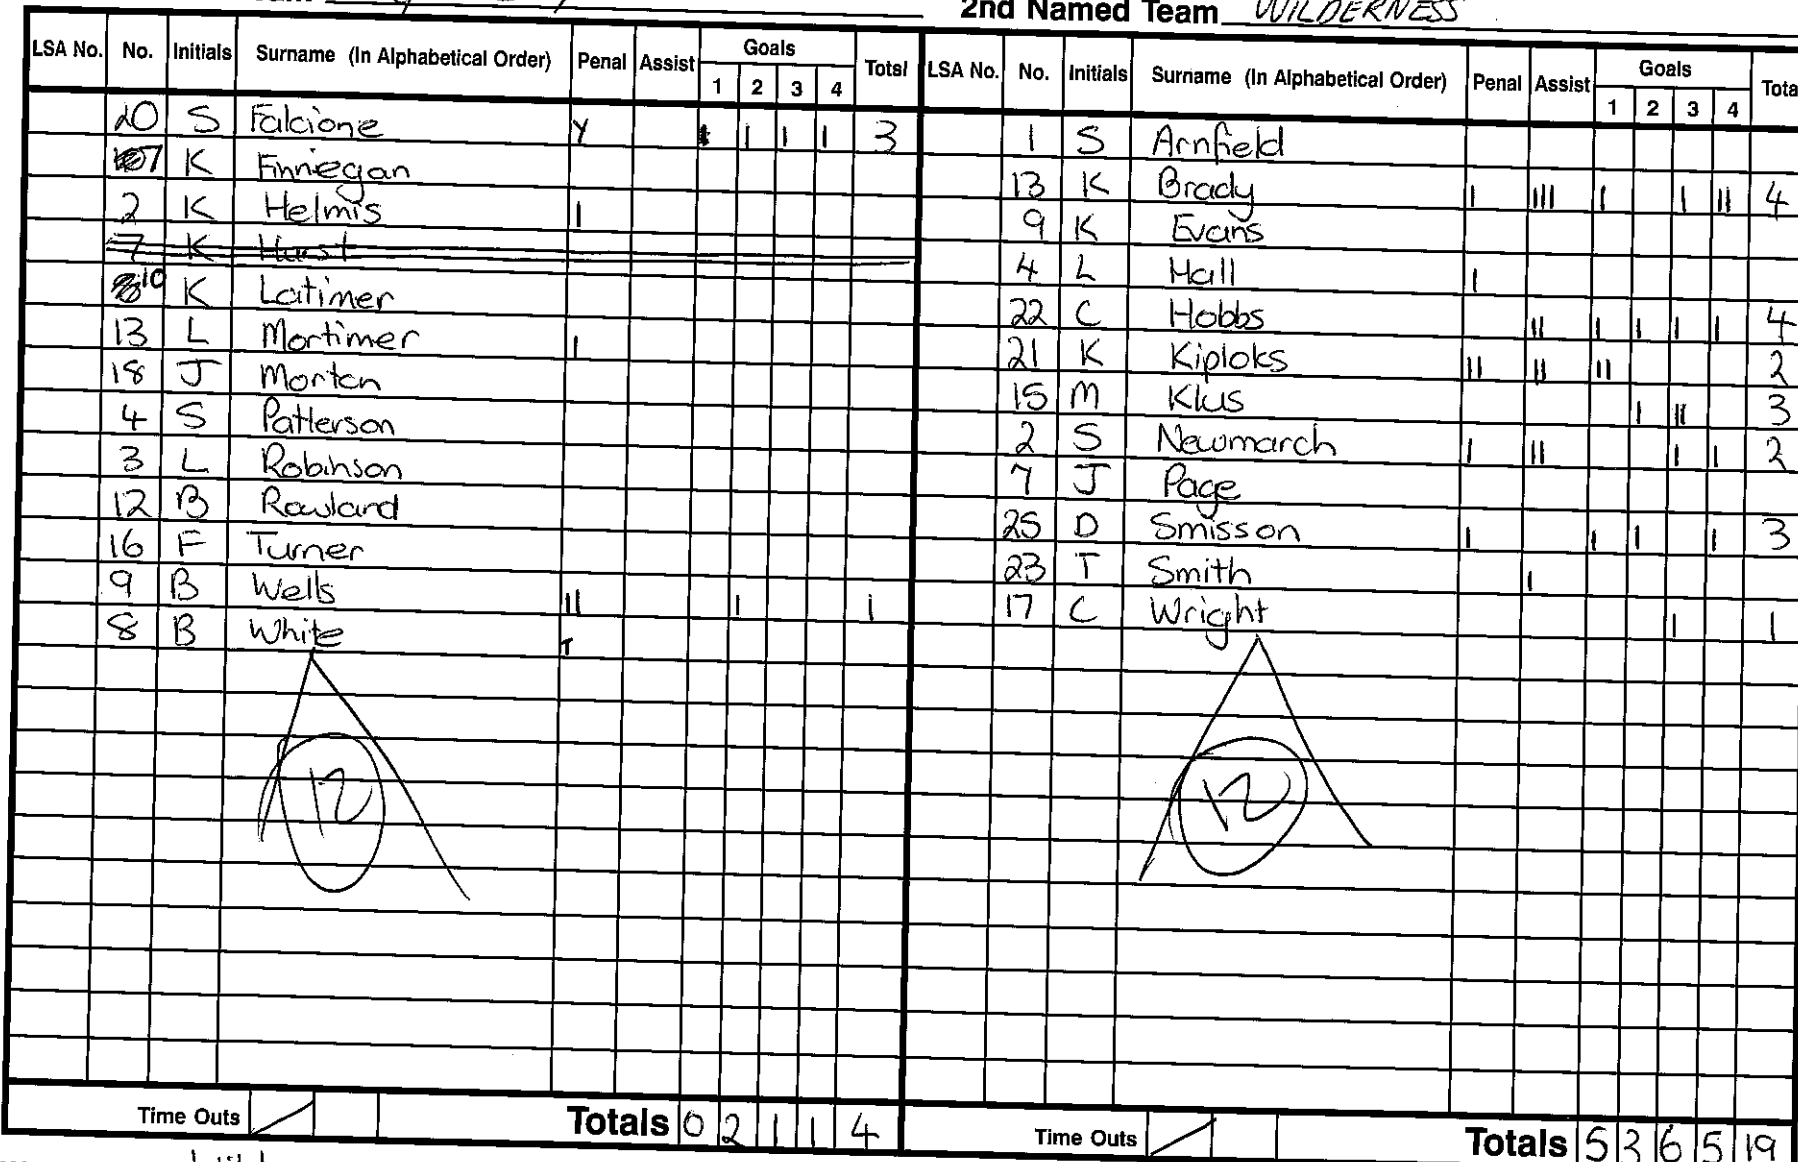 2nd Named Team WILDERNESS
LSA No. No. Initials Surname (In Alphabetical Order) Penal Assist Goals 1 2 3 4 Total
20 S Falcione Y 1 1 1 3
7 K Finnegan
2 K Helmis 1
7 K Hurst
10 K Latimer
13 L Mortimer 1
18 J Morton
4 S Patterson
3 L Robinson
12 B Rowland
16 F Turner
9 B Wells 11 1 1
8 B White T
12
Time Outs Totals 0 2 1 1 4
LSA No. No. Initials Surname (In Alphabetical Order) Penal Assist Goals 1 2 3 4 Tota
1 S Arnfield
13 K Brady 1 111 1 1 11 4
9 K Evans
4 L Hall 1
22 C Hobbs 11 1 1 1 1 4
21 K Kiploks 11 11 11 2
15 M Klus 1 11 3
2 S Newmarch 1 11 1 1 2
7 J Page
25 D Smisson 1 1 1 1 3
23 T Smith 1
17 C Wright 1 1
12
Time Outs Totals 5 3 6 5 19